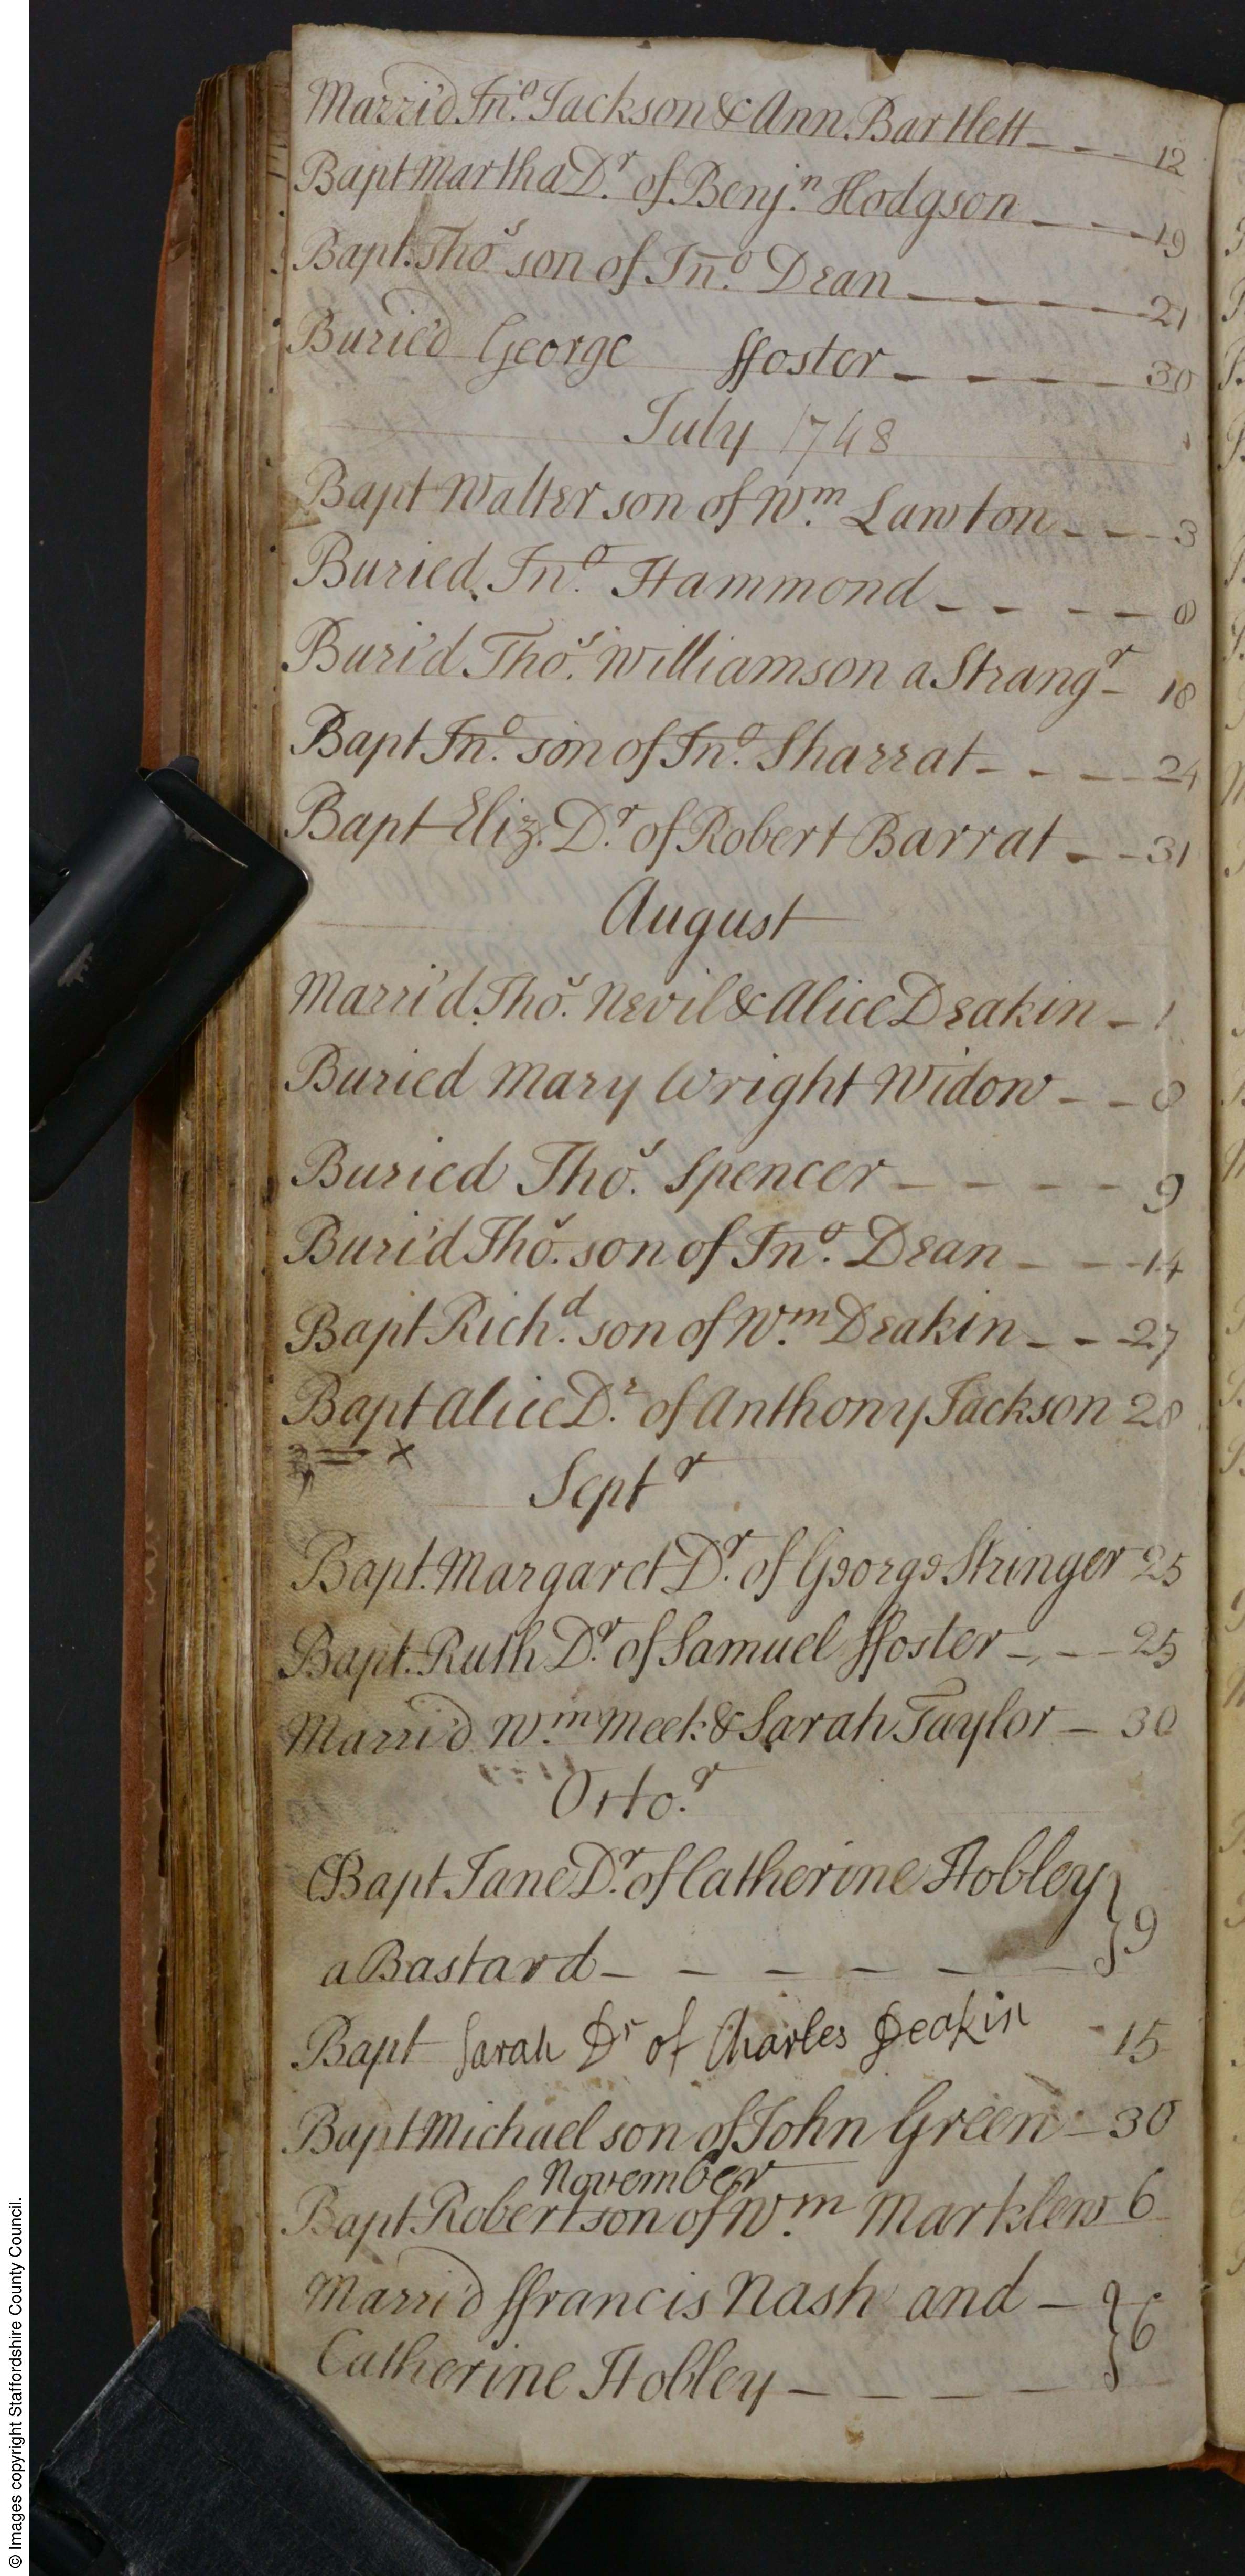 Marri'd Jno. Jackson & Ann Bartlett 12
Bapt Martha Dr. of Benjn. Hodgson 19
Bapt. Thos son of Jno. Dean 21
Buried George ffoster 30
July 1748
Bapt Walter son of Wm. Lawton 3
Buried Jno. Hammond 8
Buri'd Thos. Williamson a Strangr 18
Bapt Jno. son of Jno. Sharrat 24
Bapt Eliz. Dr. of Robert Barrat 31
August
Marri'd Thos. Nevil & Alice Deakin 1
Buried Mary Wright Widow 8
Buried Thos. Spencer 9
Buri'd Thos. son of Jno. Dean 14
Bapt Richd. son of Wm. Deakin 27
Bapt Alice Dr. of Anthony Jackson 28
x
Septr
Bapt. Margaret Dr. of George Stringer 25
Bapt. Ruth Dr. of Samuel ffoster 25
Marri'd Wm. Meek & Sarah Taylor 30
Octo.r
Bapt Jane Dr. of Catherine Hobley } 9
a Bastard
Bapt Sarah Dr of Charles Deakin 15
Bapt Michael son of John Green 30
November
Bapt. Robert son of Wm. Marklew 6
Marri'd ffrancis Nash and } 6
Catherine Hobley
© Images copyright Staffordshire County Council.